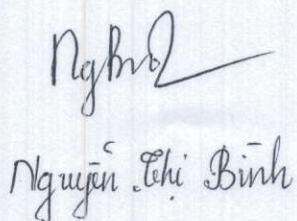 Nguyễn Thị Bình